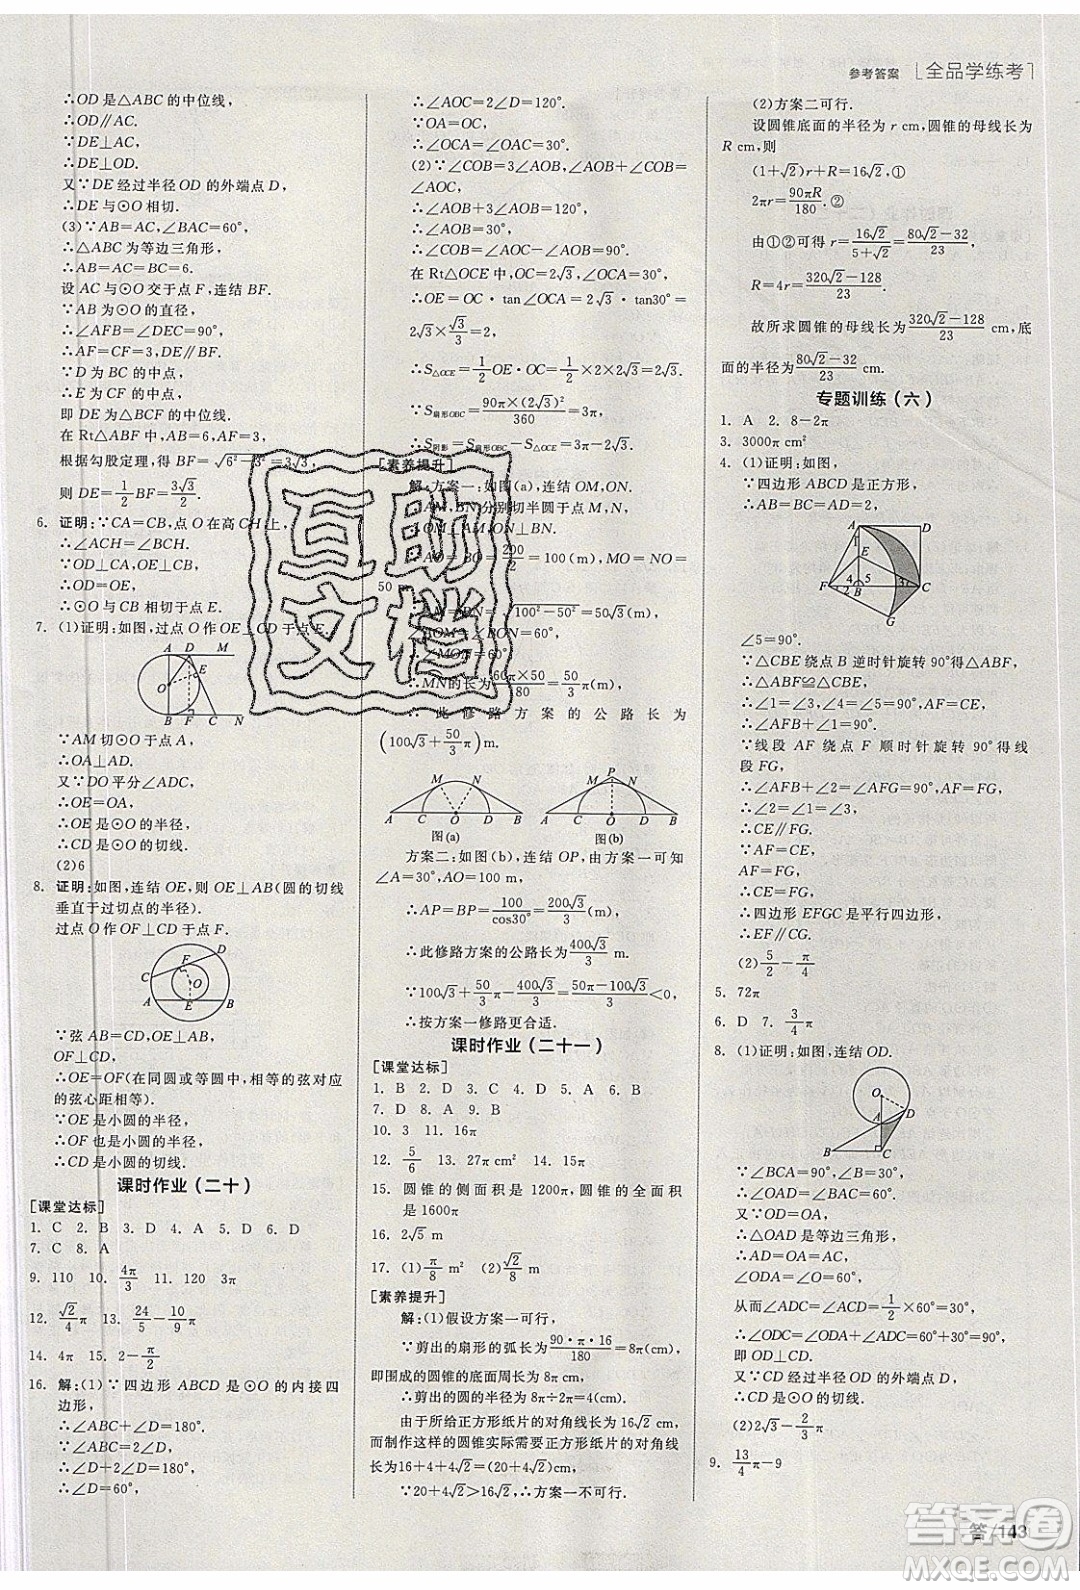 参考答案 [全品学练考]
∴OD是△ABC的中位线,
∴OD∥AC.
∵DE⊥AC,
∴DE⊥OD.
又∵DE经过半径OD的外端点D,
∴DE与⊙O相切.
(3)∵AB=AC,∠BAC=60°,
∴△ABC为等边三角形,
∴AB=AC=BC=6.
设AC与⊙O交于点F,连结BF.
∵AB为⊙O的直径,
∴∠AFB=∠DEC=90°,
∴AF=CF=3,DE∥BF.
∵D为BC的中点,
∴E为CF的中点,
即DE为△BCF的中位线.
在Rt△ABF中,
根据勾股定理,得BF=√(6²-3²)=3√3,
则DE=1/2BF=3√3/2.
6. 证明:∵CA=CB,点O在高CH上,
∴∠ACH=∠BCH.
∵OD⊥CA,OE⊥CB,
∴OD=OE,
∴⊙O与CB相切于点E.
7. (1)证明:如图,过点O作OE⊥CD于点E.
A D M
E
O
B F C N
∵AM切⊙O于点A,
∴OA⊥AD.
又∵DO平分∠ADC,
∴OE=OA,
∴OE是⊙O的半径,
∴CD是⊙O的切线.
(2)6
8. 证明:如图,连结OE,则OE⊥AB(圆的切线
垂直于过切点的半径).
过点O作OF⊥CD于点F.
F D
C
O
A E B
∵弦AB=CD,OE⊥AB,
OF⊥CD,
∴OE=OF(在同圆或等圆中,相等的弦对应
的弦心距相等).
∵OE是小圆的半径,
∴OF也是小圆的半径,
∴CD是小圆的切线.
课时作业(二十)
[课堂达标]
1. C 2. B 3. D 4. A 5. D 6. D
7. C 8. A
9. 110 10. 4π/3 11. 120 3π
12. √2/4π 13. 24/5-10/9π
14. 4π 15. 2-π/2
16. 解:(1)∵四边形ABCD是⊙O的内接四
边形,
∴∠ABC+∠D=180°.
∵∠ABC=2∠D,
∴∠D+2∠D=180°,
∴∠D=60°,
∴∠AOC=2∠D=120°.
∵OA=OC,
∴∠OCA=∠OAC=30°.
(2)∵∠COB=3∠AOB,∠AOC=∠COB+
∠AOC,
∴∠AOC=4∠AOB=120°,
∴∠AOB=30°,
∴∠COB=∠AOC-∠AOB=90°.
在Rt△OCE中,OC=2√3,∠OCA=30°,
∴OE=OC·tan∠OCA=2√3·tan30°=
2√3×√3/3=2,
∴S△OCE=1/2OE·OC=1/2×2×2√3=2√3.
∵S扇形OBC=90π×(2√3)²/360=3π,
∴S阴影=S扇形OBC-S△OCE=3π-2√3.
[素养提升]
解:方案一:如图(a),连结OM,ON.
∵AM,BN分别切半圆于点M,N,
∴OM⊥AM,ON⊥BN.
∵AO=BO=200/2=100(m),MO=NO=
50 m,
∴AM=BN=√(100²-50²)=50√3(m),
∠AOM=∠BON=60°,
∴∠MON=60°,
∴MN的长为60π×50/180=50/3π(m),
∴此修路方案的公路长为
(100√3+50/3π)m.
M N
A C O D B
图(a)
M P N
A C O D B
图(b)
方案二:如图(b),连结OP,由方案一可知
∠A=30°,AO=100 m,
∴AP=BP=100/cos30°=200√3/3(m),
∴此修路方案的公路长为400√3/3 m.
∵100√3+50π/3-400√3/3=(50π-100√3)/3<0,
∴按方案一修路更合适.
课时作业(二十一)
[课堂达标]
1. B 2. D 3. C 4. D 5. A 6. B
7. D 8. A 9. B
10. 3 11. 16π
12. 5/6 13. 27π cm² 14. 15π
15. 圆锥的侧面积是1200π,圆锥的全面积
是1600π
16. 2√5 m
17. (1)π/8 m² (2)√2/8 m
[素养提升]
解:(1)假设方案一可行,
∵剪出的扇形的弧长为90·π·16/180=8π(cm),
即围成的圆锥的底面周长为8π cm,
∴剪出的圆的半径为8π÷2π=4(cm).
由于所给正方形纸片的对角线长为16√2 cm,
而制作这样的圆锥实际需要正方形纸片的对角线
长为16+4+4√2=(20+4√2)cm,
∵20+4√2>16√2,∴方案一不可行.
(2)方案二可行.
设圆锥底面的半径为r cm,圆锥的母线长为
R cm,则
(1+√2)r+R=16√2,①
2πr=90πR/180.②
由①②可得r=16√2/(5+√2)=(80√2-32)/23,
R=4r=(320√2-128)/23.
故所求圆锥的母线长为(320√2-128)/23 cm,底
面的半径为(80√2-32)/23 cm.
专题训练(六)
1. A 2. 8-2π
3. 3000π cm²
4. (1)证明:如图,
∵四边形ABCD是正方形,
A D
1 E
F 4 5 3 C
2 B
G
∠5=90°.
∵△CBE绕点B逆时针旋转90°得△ABF,
∴△ABF≌△CBE,
∴∠1=∠3,∠4=∠5=90°,AF=CE,
∴∠AFB+∠1=90°.
∵线段AF绕点F顺时针旋转90°得线
段FG,
∴∠AFB+∠2=90°,AF=FG,
∴∠2=∠1=∠3,
∴CE∥FG.
∵AF=CE,
AF=FG,
∴CE=FG,
∴四边形EFGC是平行四边形,
∴EF∥CG.
(2)5/2-π/4
5. 72π
6. D 7. 3/4π
8. (1)证明:如图,连结OD.
O
D
A
B C
∵∠BCA=90°,∠B=30°,
∴∠OAD=∠BAC=60°.
又∵OD=OA,
∴△OAD是等边三角形,
∴AD=OA=AC,
∠ODA=∠O=60°,
从而∠ADC=∠ACD=1/2∠OAD=30°,
∴∠ODC=∠ODA+∠ADC=60°+30°=90°,
即OD⊥CD.
又∵OD是⊙O的半径,
∴CD是⊙O的切线.
(2)2√3-2/3π
9. 13/4π-9
互助
文档
答/143
答案圈
MXQE.COM